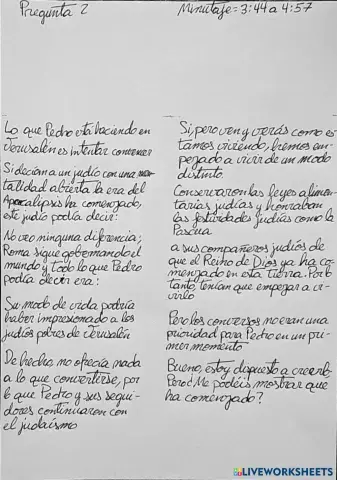 Pregunta 2
Minutaje = 3:44 a 4:57
Lo que Pedro está haciendo en
Jerusalén es intentar convencer
Si decían a un judío con una men
talidad abierta la era del
Apocalipsis ha comenzado,
este judío podía decir:
No veo ninguna diferencia;
Roma sigue gobernando el
mundo y todo lo que Pedro
podía decir era:
Su modo de vida podría
haber impresionado a los
judíos pobres de Jerusalén
De hecho, no ofrecía nada
a lo que convertirse, por
lo que Pedro y sus segui-
dores continuaron con
el judaísmo
Si, pero ven y verás como es
tamos viviendo, hemos em-
pezado a vivir de un modo
distinto
Conservaron las leyes alimen
tarias judías y honraban
las festividades judías como la
Pascua
a sus compañeros judíos de
que el Reino de Dios ya ha co
menzado en esta tierra. Por lo
tanto, tenían que empezar a vi-
virlo
Pero los conversos no eran una
prioridad para Pedro en un pri-
mer momento
Bueno, estoy dispuesto a creerlo
Pero ¿Me podéis mostrar que
ha comenzado?
LIVEWORKSHEETS